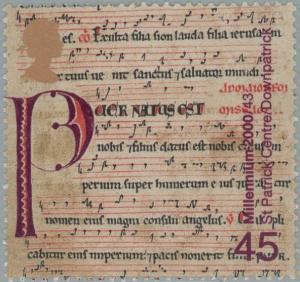 Exulta filia sion lauda filia ierusalem
eius ne sanctus & saluator mundi
PUER NATUS EST
nobis filius datus est nobis
perium super humerum eius
nomen eius magni consilii angelus.
cabitur eius imperium & pacis non erit
Millennium 2000/43
St Patrick Centre/Downpatrick
45